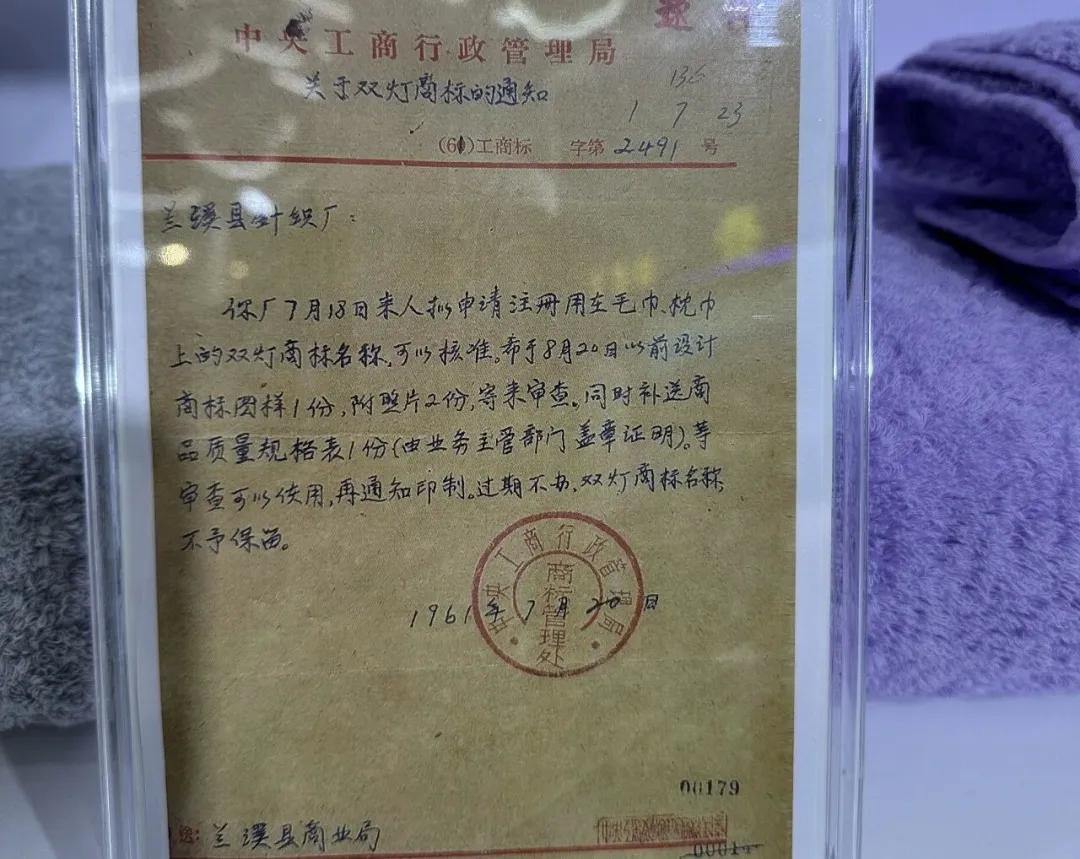 中央工商行政管理局
关于双灯商标的通知
136
1 7 23
(61)工商标 字第2491号
兰溪县针织厂：
你厂7月18日来人拟申请注册用在毛巾、枕巾
上的双灯商标名称，可以核准。希于8月20日以前设计
商标图样1份，附照片2份，寄来审查。同时补送商
品质量规格表1份(由业务主管部门盖章证明)。等
审查可以使用，再通知印制。过期不办，双灯商标名称
不予保留。
中央工商行政管理局
商标管理处
1961年7月20日
00179
送：兰溪县商业局